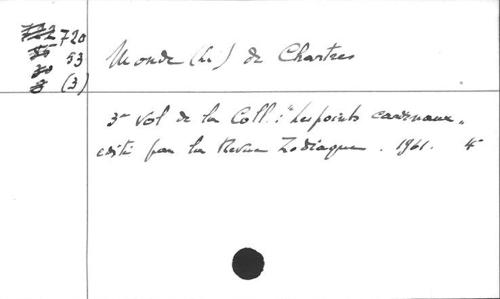 720
53
(3)
Monde (Le) de Chartres
3e vol de la Coll : "Les points cardinaux"
edité par la Revue Zodiaque . 1961. 4°